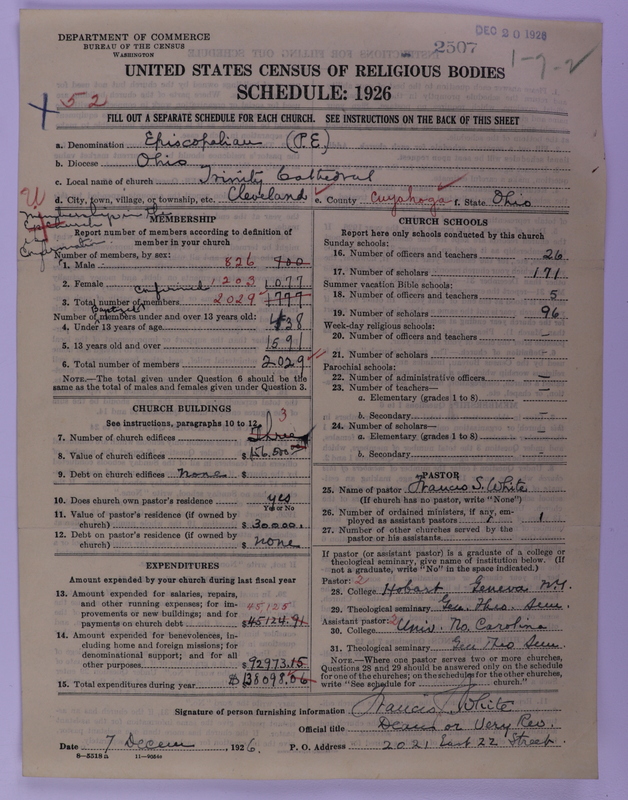 DEC 20 1926
DEPARTMENT OF COMMERCE
BUREAU OF THE CENSUS
WASHINGTON
2507
1-7-2
UNITED STATES CENSUS OF RELIGIOUS BODIES
SCHEDULE: 1926
52
FILL OUT A SEPARATE SCHEDULE FOR EACH CHURCH. SEE INSTRUCTIONS ON THE BACK OF THIS SHEET
a. Denomination Episcopalian (P.E.)
b. Diocese Ohio
c. Local name of church Trinity Cathedral
d. City, town, village, or township, etc. Cleveland e. County Cuyahoga f. State Ohio
Membership in this
Confirmation
MEMBERSHIP
Report number of members according to definition of
member in your church
Number of members, by sex:
1. Male 826 700
2. Female 1203 1,077
confirmed
3. Total number of members 2029 1777
Baptized
Number of members under and over 13 years old:
4. Under 13 years of age 438
5. 13 years old and over 1591
6. Total number of members 2029
NOTE.—The total given under Question 6 should be the
same as the total of males and females given under Question 3.
CHURCH BUILDINGS
See instructions, paragraphs 10 to 12
3
7. Number of church edifices Three
8. Value of church edifices $
9. Debt on church edifices None $
10. Does church own pastor's residence yes
Yes or No
11. Value of pastor's residence (if owned by
church) $ 30000.
12. Debt on pastor's residence (if owned by
church) $ none
EXPENDITURES
Amount expended by your church during last fiscal year
13. Amount expended for salaries, repairs,
and other running expenses; for im-
provements or new buildings; and for
45125
payments on church debt $45124.91
14. Amount expended for benevolences, in-
cluding home and foreign missions; for
denominational support; and for all
other purposes $92973.15
15. Total expenditures during year $138098.06
CHURCH SCHOOLS
Report here only schools conducted by this church
Sunday schools:
16. Number of officers and teachers 26
17. Number of scholars 171
Summer vacation Bible schools:
18. Number of officers and teachers 5
19. Number of scholars 96
Week-day religious schools:
20. Number of officers and teachers -
21. Number of scholars -
Parochial schools:
22. Number of administrative officers -
23. Number of teachers—
a. Elementary (grades 1 to 8) -
b. Secondary -
24. Number of scholars—
a. Elementary (grades 1 to 8) -
b. Secondary -
PASTOR
25. Name of pastor Francis S. White
(If church has no pastor, write "None")
26. Number of ordained ministers, if any, em-
ployed as assistant pastors 1
27. Number of other churches served by the
pastor or his assistants
If pastor (or assistant pastor) is a graduate of a college or
theological seminary, give name of institution below. (If
not a graduate, write "No" in the space indicated.)
Pastor: 2
28. College Hobart Geneva N.Y.
29. Theological seminary Gen. Theo. Sem.
Assistant pastor: 2
30. College Univ. No. Carolina
31. Theological seminary Gen Theo. Sem
NOTE.—Where one pastor serves two or more churches,
Questions 28 and 29 should be answered only on the schedule
for one of the churches; on the schedule for the other churches,
write "See schedule for church."
Signature of person furnishing information Francis S. White
Official title Dean or Very Rev.
Date 7 Decem, 1926. P. O. Address 2021 East 22 Street.
8—5518 a 11—9054